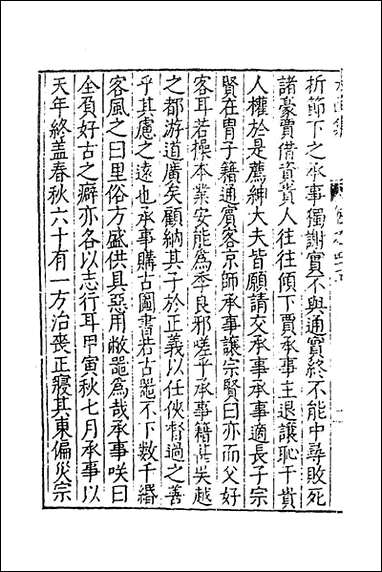 折節下之承事獨謝實不與通實終不能中尋敗死
諸豪賈借資貲人往往傾下賈承事主退讓恥干貴
人權於是薦紳大夫皆願請交承事承事適長子宗
賢在胄子籍通賓客京師承事讓宗賢曰亦而父好
客耳若操本業安能為季良邪嗟乎承事籍吳越
之都游道廣矣顧納其子於正義以任俠督過之善
乎其慮之遠也承事購古圖書若古器不下數千緡
客風之曰里俗方盛供具惡用敝器為哉承事咲曰
全負好古之癖亦各以志行耳甲寅秋七月承事以
天年終盖春秋六十有一方治喪正寢其東偏災宗